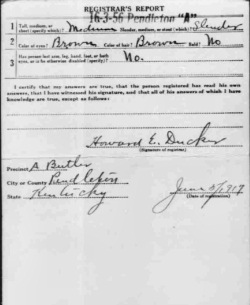 REGISTRAR'S REPORT
16-3-56 Pendleton "A"
1 Tall, medium, or short (specify which)? Medium Slender, medium, or stout (which)? Slender
2 Color of eyes? Brown Color of hair? Brown Bald? No
3 Has person lost arm, leg, hand, foot, or both eyes, or is he otherwise disabled (specify)? No.
I certify that my answers are true, that the person registered has read his own answers, that I have witnessed his signature, and that all of his answers of which I have knowledge are true, except as follows:
Howard E. Ducker
(Signature of registrar)
Precinct A Butler
City or County Pendleton
State Kentucky
June 5/1917
(Date of registration)